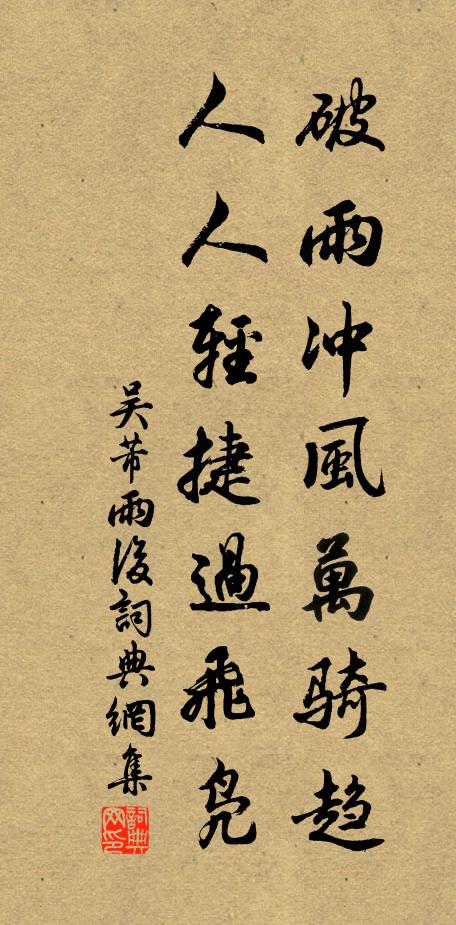 破雨冲風萬騎趋
人人輕捷過飛凫
吴芾雨後詞典網集
詞典網印